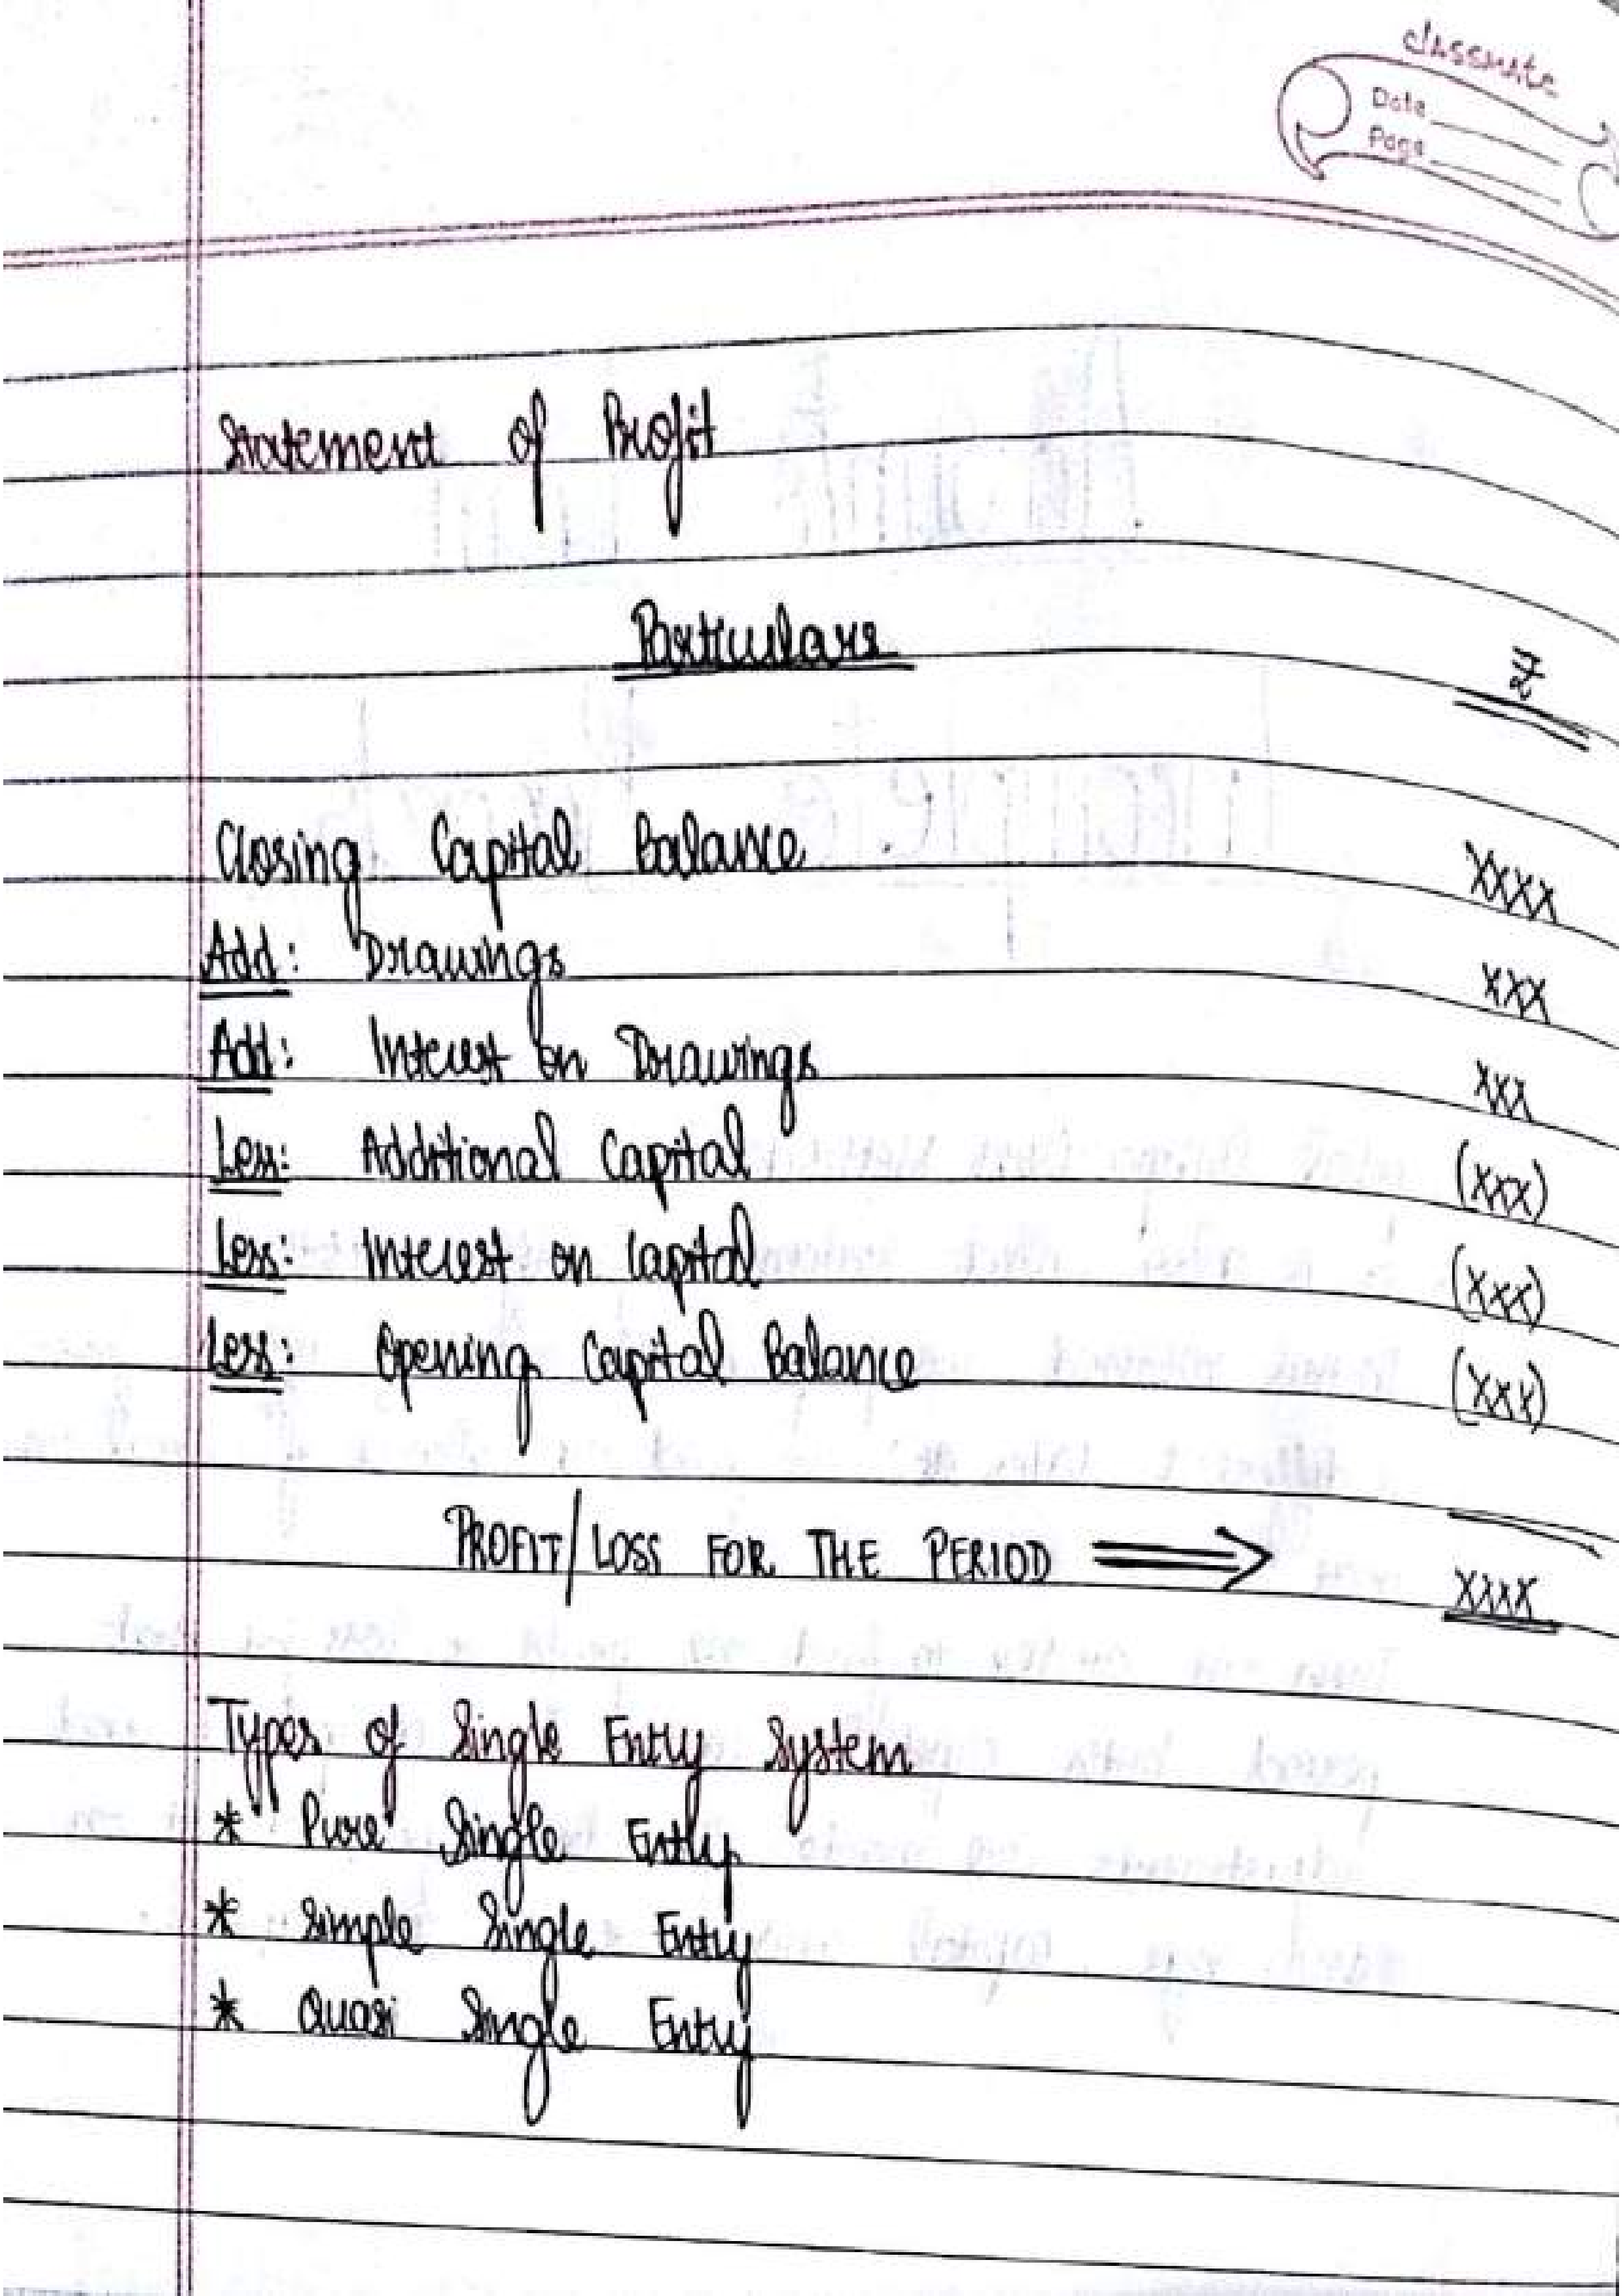 classmate
Date
Page
Statement of Profit
Particulars ₹
Closing Capital Balance XXXX
Add: Drawings XXX
Add: Interest on Drawings XXX
Less: Additional Capital (XXX)
Less: Interest on Capital (XXX)
Less: Opening Capital Balance (XXX)
PROFIT/LOSS FOR THE PERIOD ⟹ XXXX
Types of Single Entry System
* Pure Single Entry
* Simple Single Entry
* Quasi Single Entry